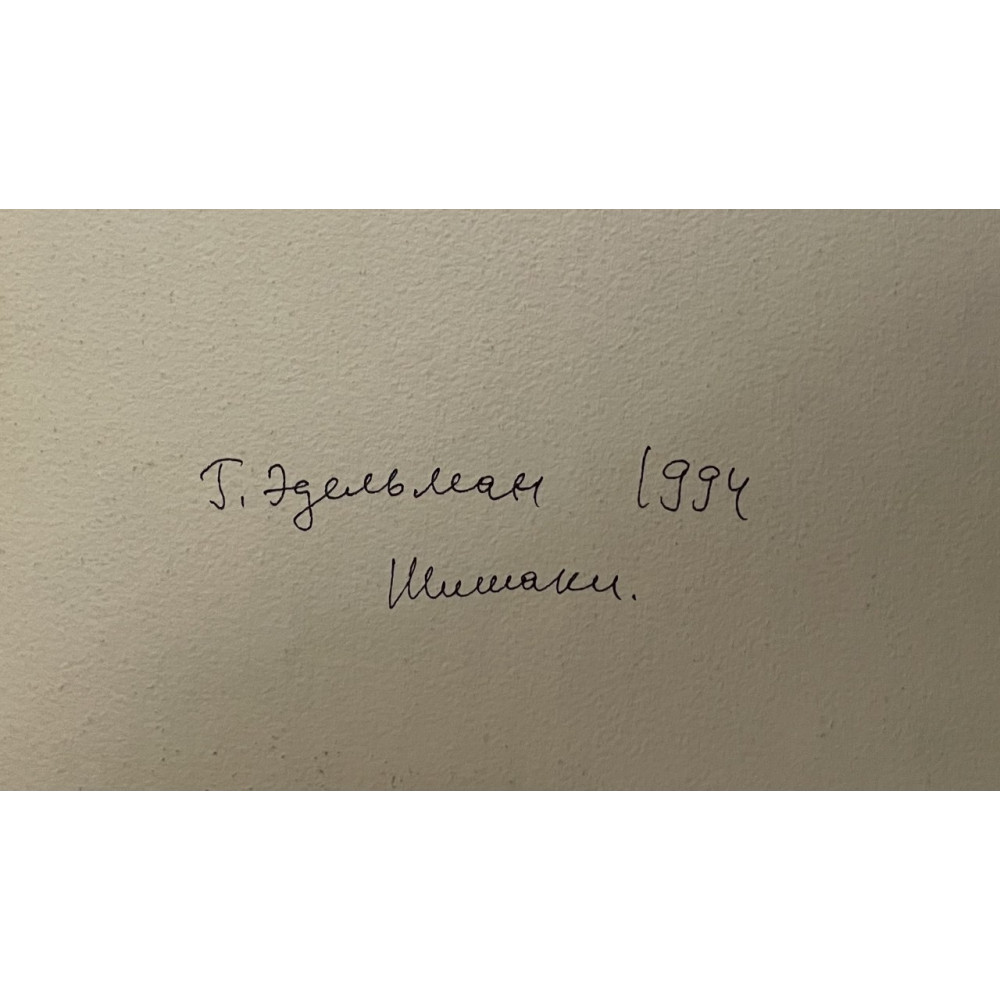 Г. Эдельман 1994
Шишаки.